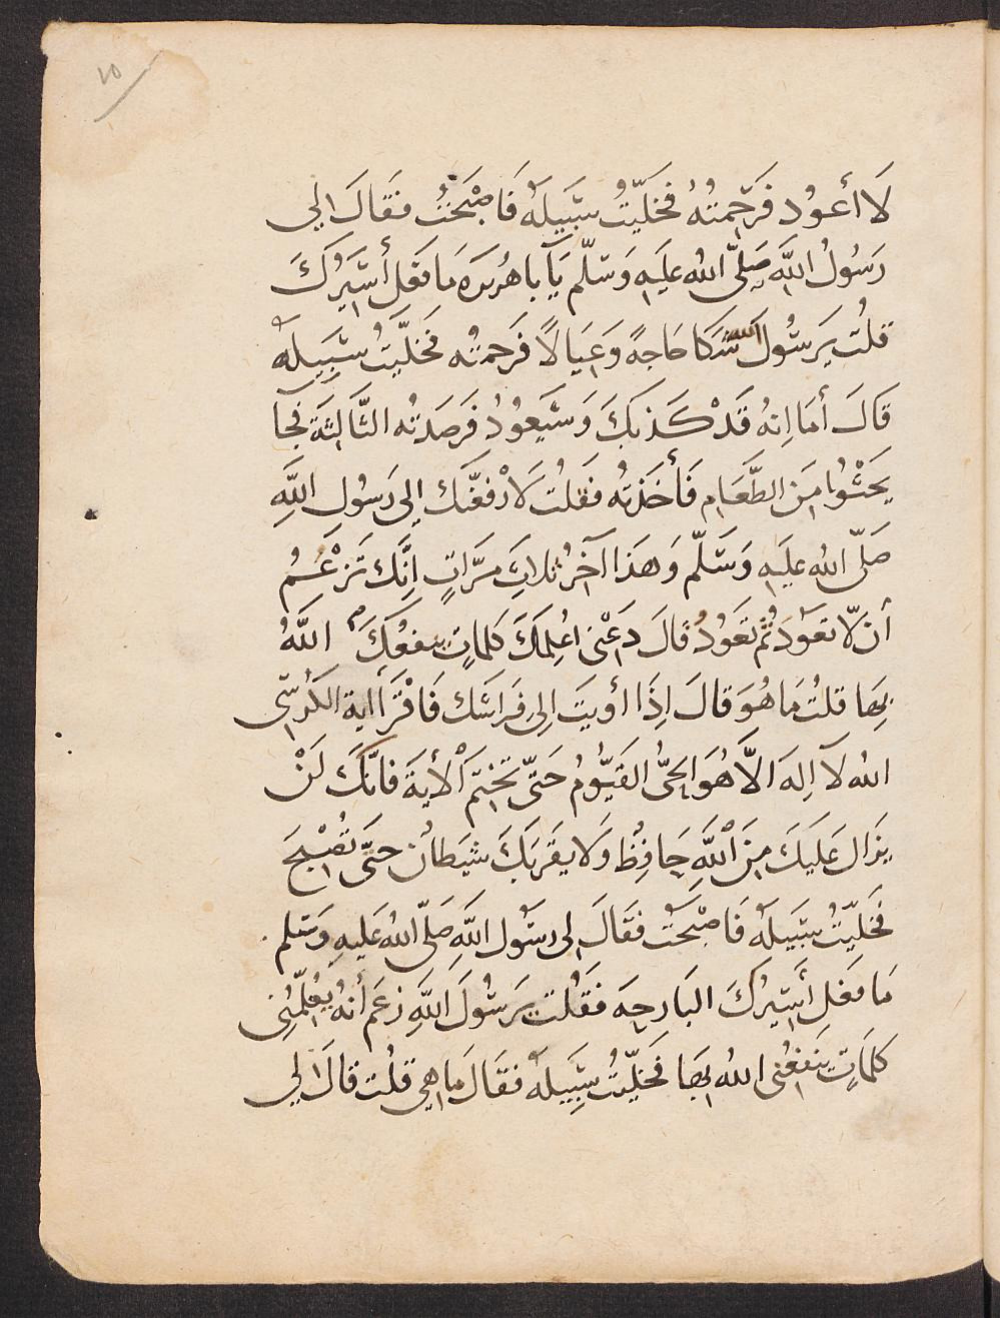 ١٥
لَا أَعُوْد فَرَحِمْتُهُ فَخَلَّيْتُ سَبِيلَهُ فَاَصْبَحْتُ فَقَالَ لِي
رَسُولُ اللَّهِ صَلَّى اللهُ عَلَيهِ وَسَلَّمَ يَآ بَا هُرَيرَةَ مَا فَعَلَ أَسِيرُكَ
قُلتُ يَرَسُولَ اللَّه شَكَا حَاجةً وَعِيَالًا فَرَحمتُه فَخَلَّيتُ سَبِيلَهُ
قَالَ أمَا اِنهُ قَدْ كَذبَكَ وَسَيَعُوْدُ فَرَصَدتُه الثَّالِثَةَ فجَا
يَحْثُوْا مِنَ الطَّعَامِ فَأَخَذتُه فَقلتُ لَأَرْفَعَنَّك اِلى رَسُولِ اللَّهِ
صَلّى اللهُ عَلَيهِ وَسَلّم وَهَذا آخَرُ ثلاثِ مَرَّاتٍ اِنَّكَ تَزْعُمُ
أن لَّا تعَوُدَ ثُم تعَوُدُ قَالَ دَعْنى اعُلِمكَ كلمَاتٍ ينفعُكَ اللَّهُ
بِهَا قلتُ مَا هُوَ قالَ اِذَا أويتَ اِلى فِرَاشك فَاقْرَأ اية الكرُسّى
الله لآ اِلهَ الَّا هُوَ الحيُّ القَيّوُمُ حَتّى تختِمَ الْأيةَ فانَّكَ لَنْ
يزَال عَليَكَ مِنَ اللَّهِ حَافِظُ وَلَا يقرَبَكَ شَيَطانُ حتَّى تصُبْحَ
فَخلَّيتُ سَبيلَهُ فَاصْبَحْتُ فقَالَ لى رسُول اللَّهِ صَلّى اللهُ عَلَيهِ وَسَلم
مَا فعَل أَسِيرُكَ البَارحِه فقَلُت يَرَسُولَ اللَّهِ زعَم أنهُ يعُلّمُنِى
كلمَاتٍ ينَفعُنى اللهُ بِهَا فَخَليّتُ سَبِيلَهُ فقَالَ مَا هِي قلُت قالَ لي